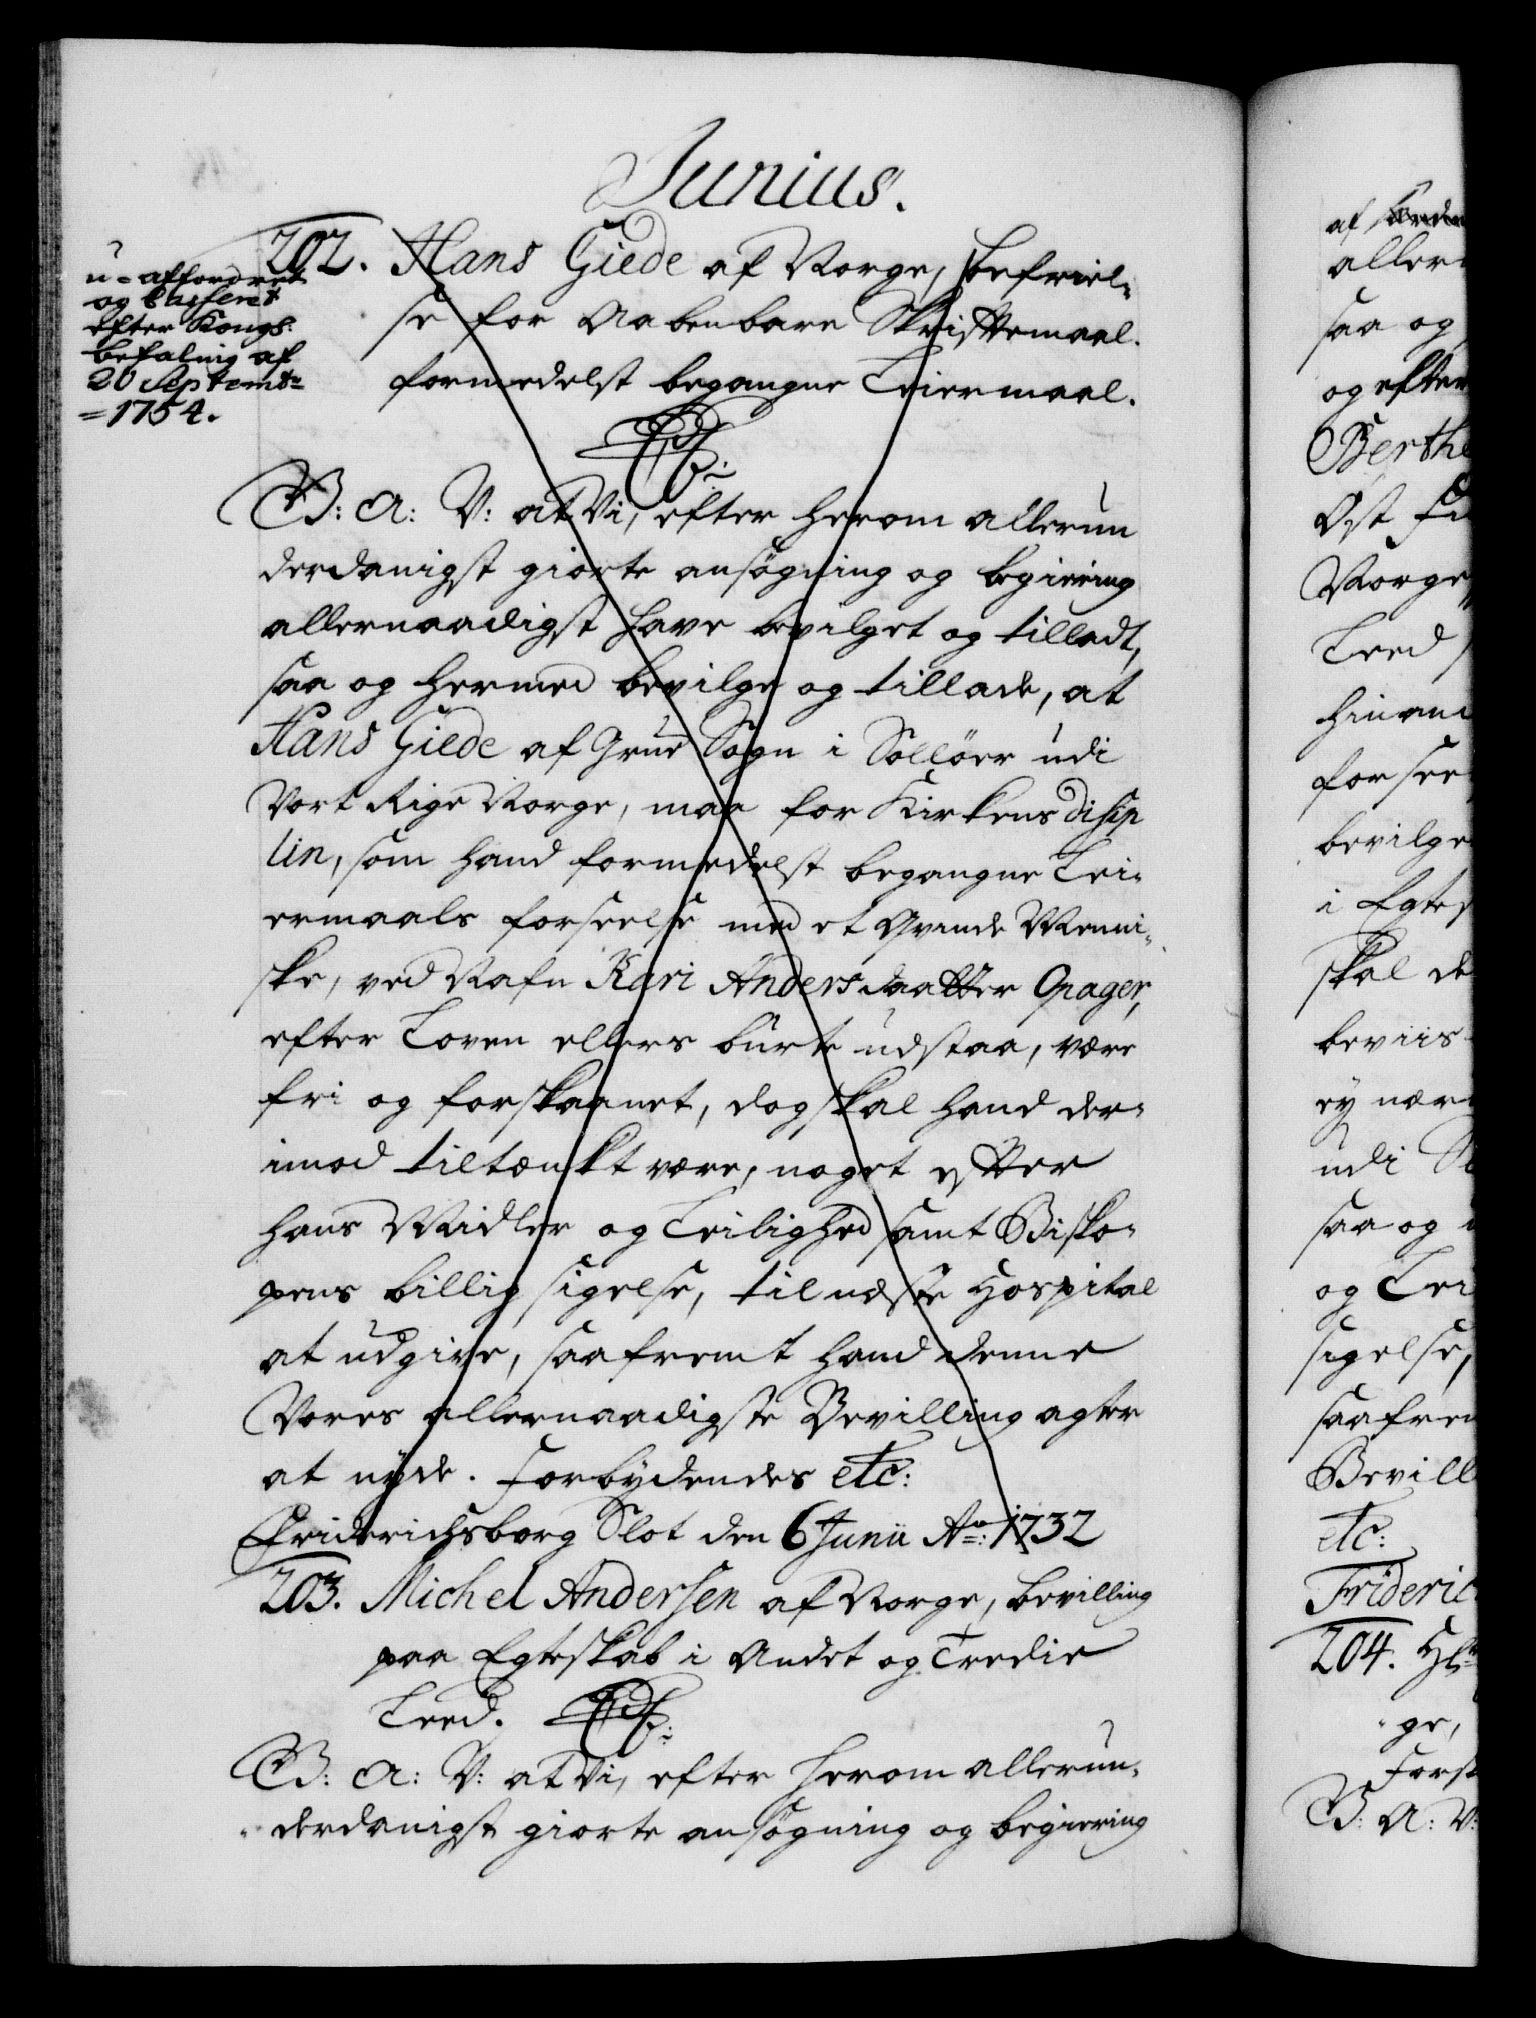 Junius.
202. Hans Giede af Norge, befriel-
se for Aabenbare Skriftemaal.
formedelst begangne Leiermaal.
u-affordret
og Casseret
efter Kongl:
befaling af
20 Septembr:
1754.
G: A: V: at Vi, efter herom allerun
derdanigst giorte ansøgning og begiering
allernaadigst have bevilget og tilladt,
saa og hermed bevilge og tillade, at
Hans Giede af Grue Sogn i Sollöer udi
Vort Rige Norge, maa for Kirkens Disip
lin, som hand formedelst begangne Lei-
ermaals forseelse med et Qvinde Menni-
ske, ved Nafn Kari Andersdaatter Opager,
efter Loven ellers burte udstaa, være
fri og forskaanet, dog skal hand der-
imod tiltænkt være, noget efter
hans Midler og Leilighed samt Bisko-
pens billig sigelse, til næste Hospital
at udgive, saafremt hand denne
Vores allernaadigste Bevilling agter
at nyde. Forbydendes etc:
Friderichsborg Slot den 6 Junii Ao: 1732
203. Michel Andersen af Norge, bevilling
paa Egteskab i Andet og Tredie
Leed.
G: A: V: at Vi, efter herom allerun-
derdanigst giorte ansøgning og begiering
af
aller
saa og
og efter
Berthe
Øst
Norge
Leed
hinan
forsee
bevilge
i Egtes
skal de
beviis
ey nær
udi
saa og
og Lei
sigelse,
saafrem
Bevill
etc:
Frideric
204.
ge,
Fors
G: A: V: